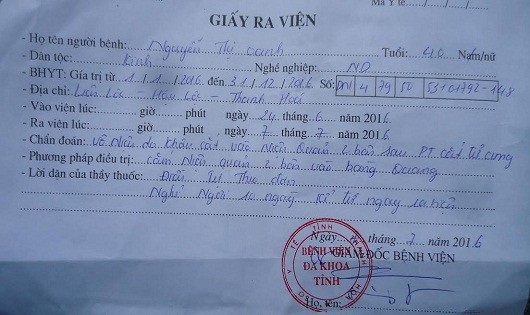 Mã Y tế
GIẤY RA VIỆN
- Họ tên người bệnh: Nguyễn Thị Oanh Tuổi: 40 Nam/nữ
- Dân tộc: Kinh Nghề nghiệp: ND
- BHYT: Giá trị từ 1 / 1 /2016 đến 31 / 12 /2016 Số: DN 4 79 50 53101792-148
- Địa chỉ: Lộc - Hậu Lộc - Thanh Hoá
- Vào viện lúc: giờ phút ngày 24 tháng 6 năm 2016
- Ra viện lúc: giờ phút ngày 7 tháng 7 năm 2016
- Chẩn đoán: Vô Niệu do khâu cắt vào Niệu Quản 2 bên sau PT cắt tử cung
- Phương pháp điều trị: cắm Niệu quản 2 bên vào bàng Quang
- Lời dặn của thầy thuốc: Điều trị Theo đơn
Nghỉ Ngơi 10 ngày kể từ ngày ra viện
Ngày tháng 7 năm 2016
GIÁM ĐỐC BỆNH VIỆN
BỆNH VIỆN
ĐA KHOA
TỈNH
Họ, tên: